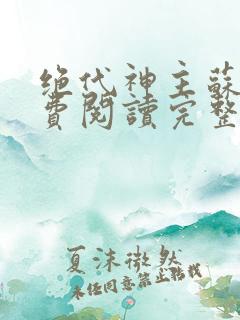 绝代神主蘇
費閱讀完整
夏沫微然
未经同意禁止转载